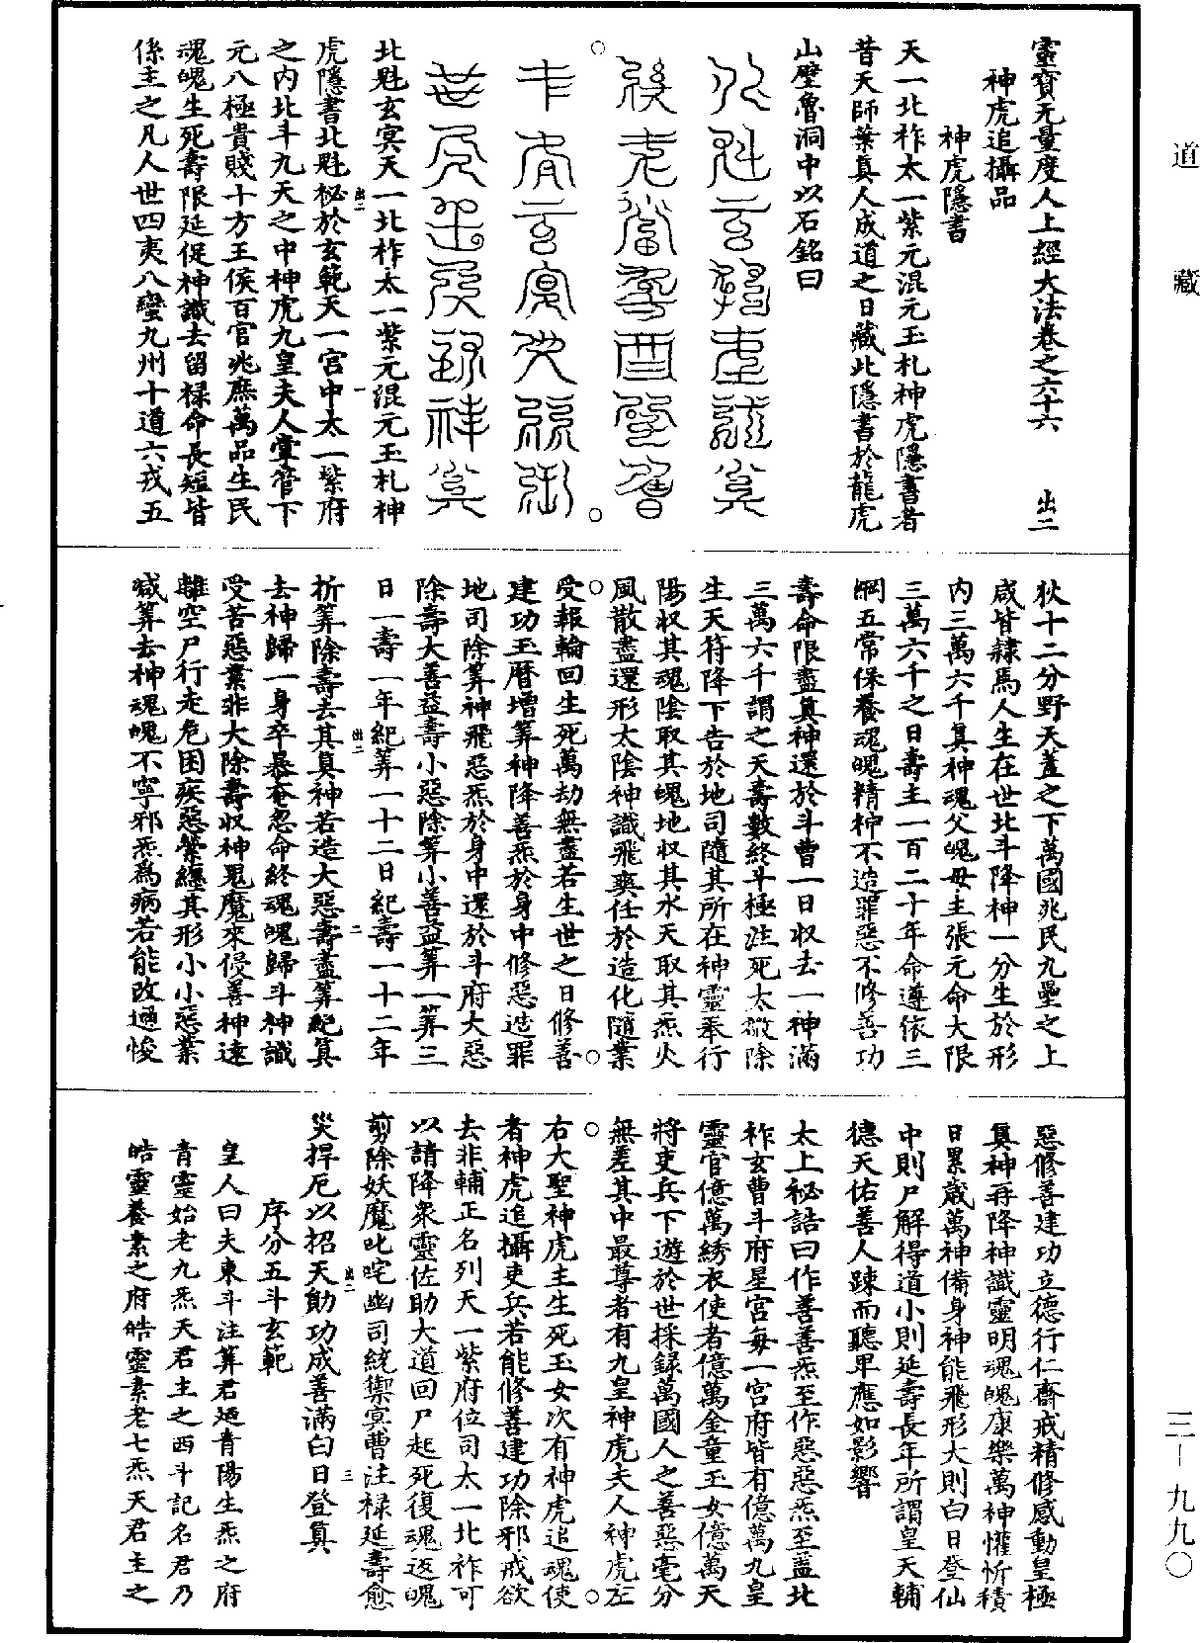 道藏
靈寶无量度人上經大法卷之六十六 出二
神虎追攝品
神虎隱書
天一北柞太一紫元混元玉札神虎隱書者
昔天師葉真人成道之日藏此隱書於龍虎
山壁魯洞中以石銘曰
北魁玄冥天一北柞太一紫元混元玉札神
虎隱書北魁祕於玄範天一宮中太一紫府
之內北斗九天之中神虎九皇夫人掌管下
元八極貴賤十方王侯百官兆庶萬品生民
魂魄生死壽限延促神識去留祿命長短皆
係主之凡人世四夷八蠻九州十道六戎五
狄十二分野天蓋之下萬國兆民九壘之上
咸皆隸焉人生在世北斗降神一分生於形
內三萬六千真神魂父魄母主張元命大限
三萬六千之日壽主一百二十年命遵依三
綱五常保養魂魄精神不造罪惡不修善功
壽命限盡真神還於斗曹一日收去一神滿
三萬六千謂之天壽數終斗極注死太微除
生天符降下告於地司隨其所在神靈奉行
陽收其魂陰取其魄地收其水天取其炁火
風散盡還形太陰神識飛爽任於造化隨業
受報輪回生死萬劫無盡若生世之日修善
建功玉曆增筭神降善炁於身中修惡造罪
地司除筭神飛惡炁於身中還於斗府大惡
除壽大善益壽小惡除筭小善益筭一筭三
日一壽一年紀筭一十二日紀壽一十二年
折筭除壽去其真神若造大惡壽盡筭紀真
去神歸一身卒暴奄忽命終魂魄歸斗神識
受苦惡業非大除壽收神鬼魔來侵善神遠
離空尸行走危困疾惡縈纏其形小小惡業
減筭去神魂魄不寧邪炁為病若能改過悛
惡修善建功立德行仁齋戒精修感動皇極
真神再降神識靈明魂魄康樂萬神懽忻積
日累歲萬神備身神能飛形大則白日登仙
中則尸解得道小則延壽長年所謂皇天輔
德天佑善人踈而聽卑應如影響
太上祕誥曰作善善炁至作惡惡炁至蓋北
祚玄曹斗府星宮每一宮府皆有億萬九皇
靈官億萬綉衣使者億萬金童玉女億萬天
將吏兵下遊於世採錄萬國人之善惡毫分
無差其中最尊者有九皇神虎夫人神虎左
右大聖神虎主生死玉女次有神虎追魂使
者神虎追攝吏兵若能修善建功除邪戒欲
去非輔正名列天一紫府位司太一北祚可
以請降衆靈佐助大道回尸起死復魂返魄
剪除妖魔叱咤幽司統禦冥曹注祿延壽愈
災捍厄以招天勛功成善滿白日登真
序分五斗玄範
皇人曰夫東斗注筭君廼青陽生炁之府
青靈始老九炁天君主之西斗記名君乃
皓靈養素之府皓靈素老七炁天君主之
三-九九〇